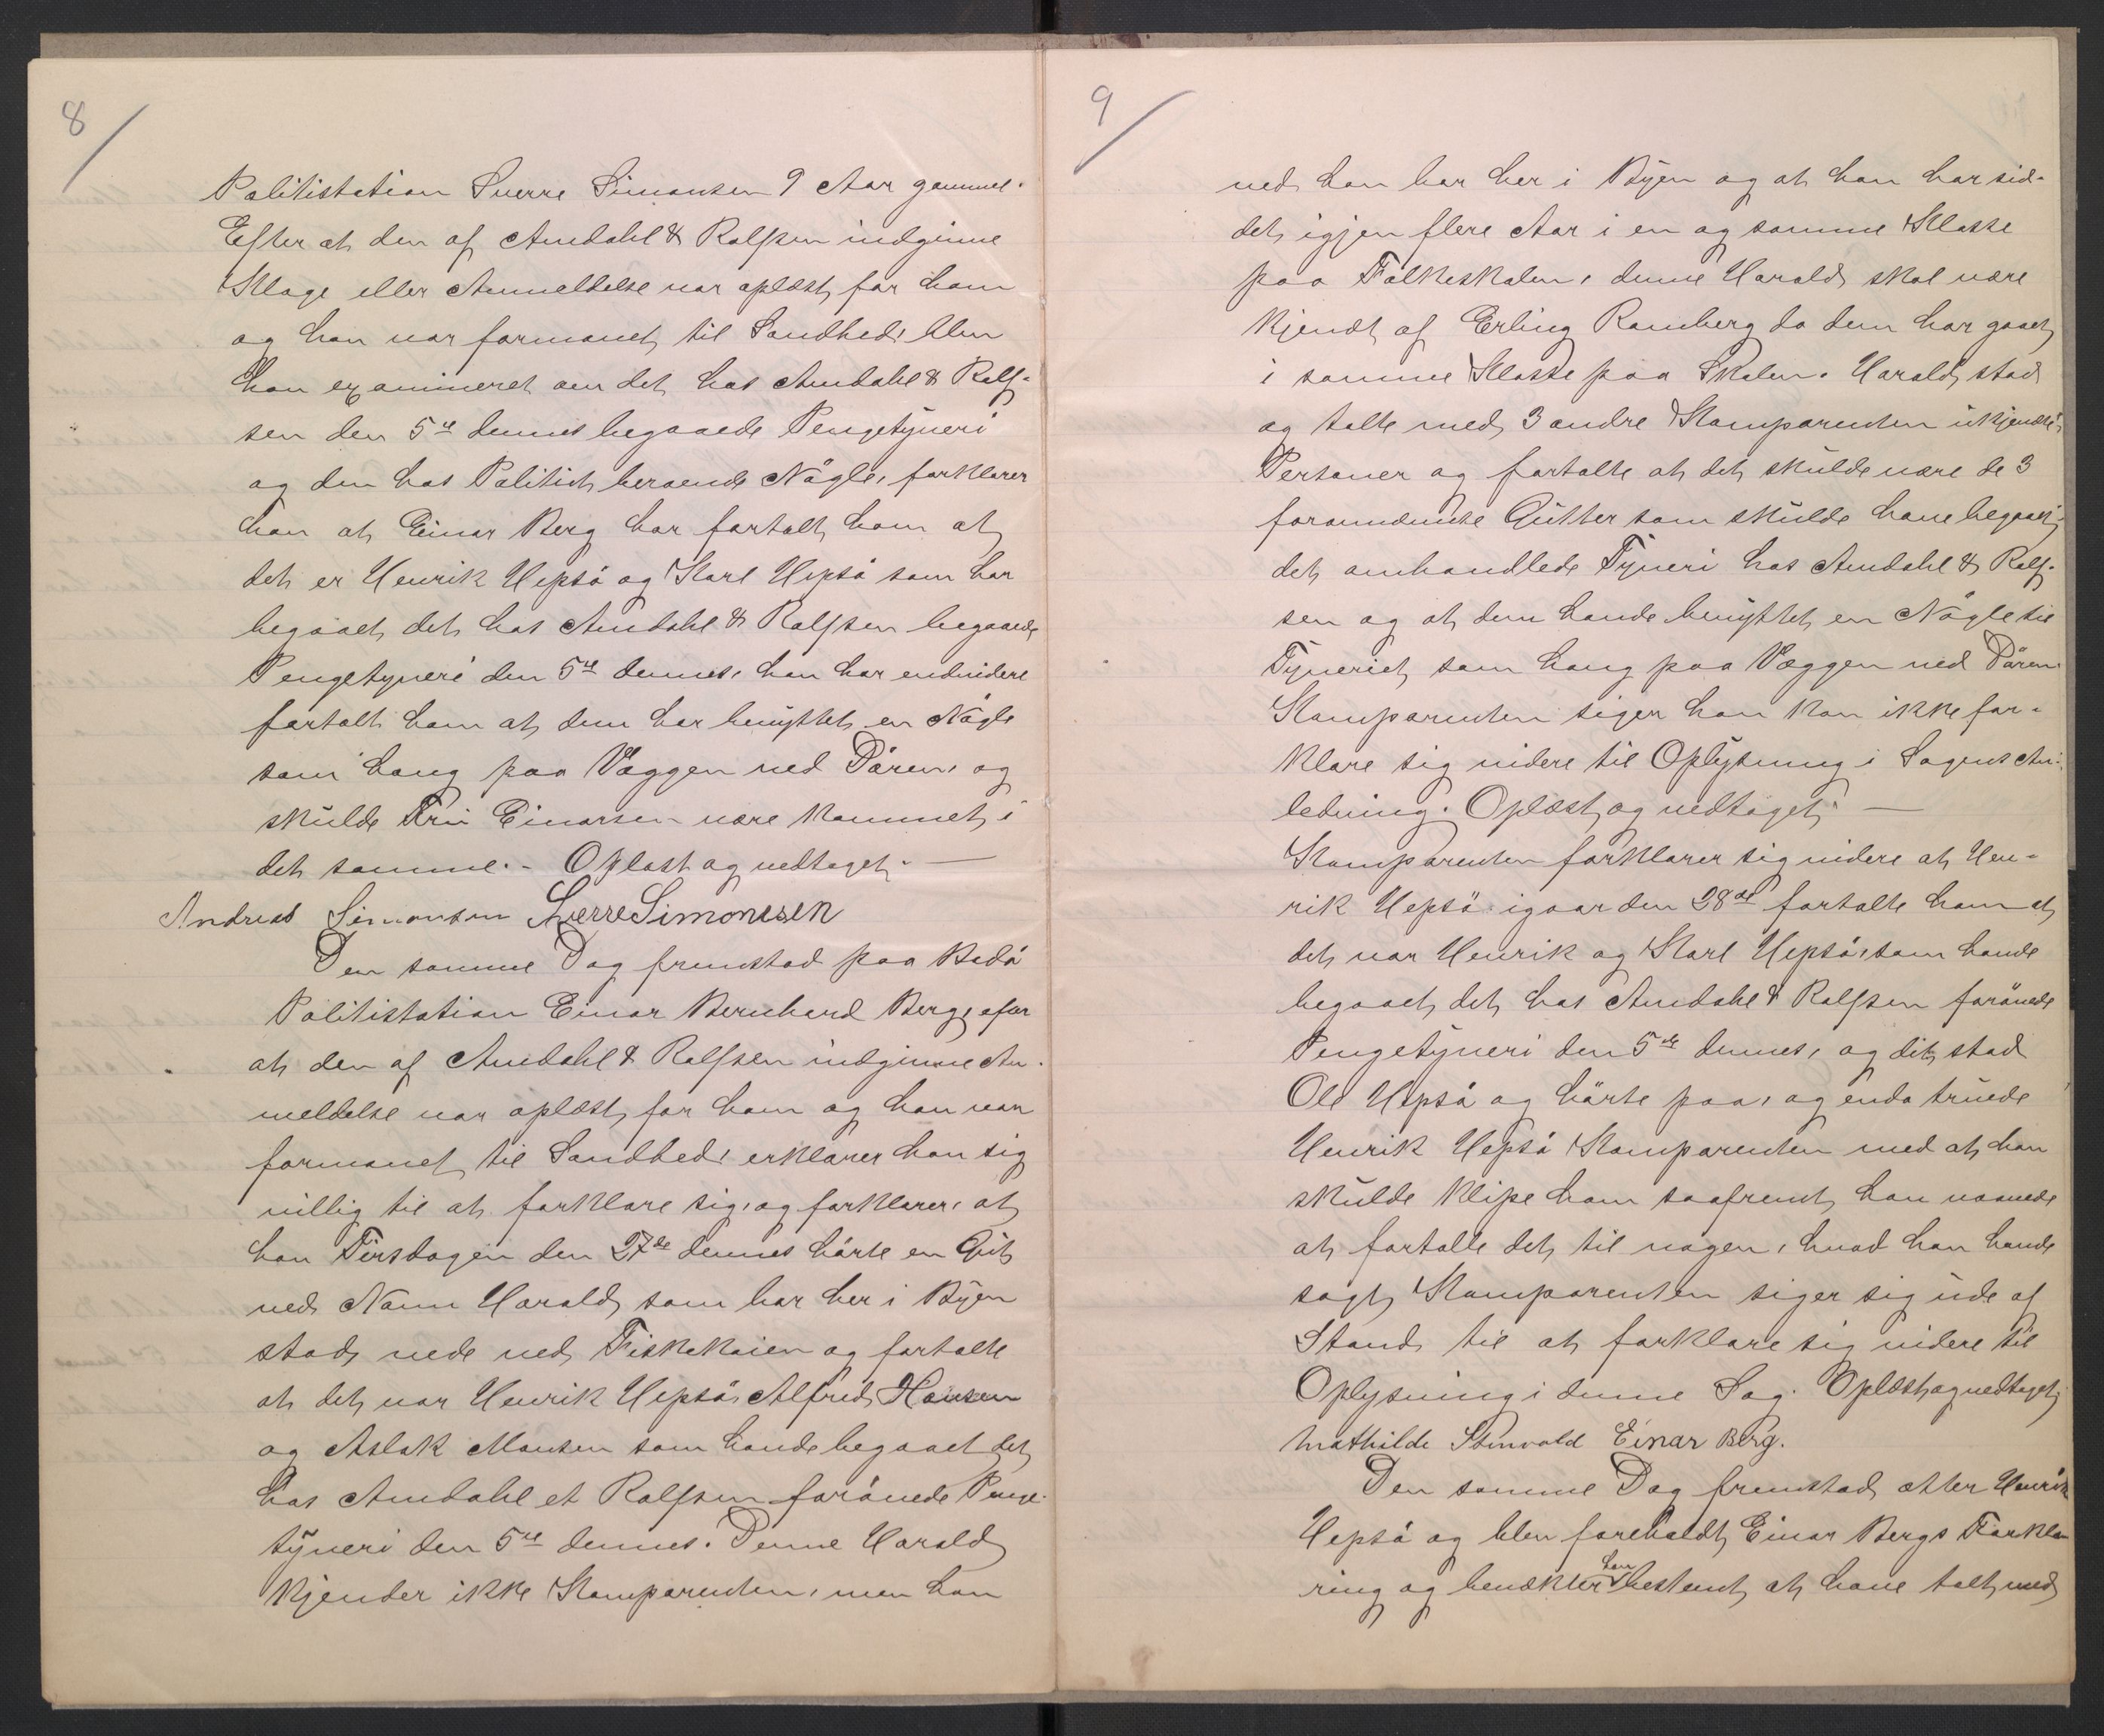 8
Politistation Sverre Simonsen 9 Aar gammel.
Efter at den af Amdahl & Rolfsen indgivne
Klage eller Anmeldelse var oplæst for ham
og han var formanet til Sandhed, blev
han examineret om det hos Amdahl & Rolf-
sen den 5te dennes begaaede Pengetyveri
og den hos Politiet beroende Nøgle, forklarer
han at Einar Berg har fortalt ham at
det er Henrik Hepsø og Karl Hepsø som har
begaaet det hos Amdahl & Rolfsen begaaede
Pengetyveri den 5te dennes, han har endvidere
fortalt ham at dem har benyttet en Nøgle
som hang paa Væggen ved Døren, og
skulde Fru Einarsen være kommet i
det samme. - Oplæst og vedtaget. —
Andreas Simonsen Sverre Simonsen
Den samme Dag fremstod paa Bodø
Politistation Einar Bernhard Berg, efter
at den af Amdahl & Rolfsen indgivne An-
meldelse var oplæst for ham og han var
formanet til Sandhed, erklærer han sig
villig til at forklare sig, og forklarer, at
han Tirsdagen den 27de dennes hørte en Gut
ved Navn Harald, som bor her i Byen
stod nede ved Fiskekaien og fortalte
at det var Henrik Hepsø, Alfred Hansen
og Aslak Monsen som havde begaaet det
hos Amdahl et Rolfsen forøvede Penge-
tyveri den 5te dennes. Denne Harald
kjender ikke Komparenten, men han
9
ved han bor her i Byen og at han har sid-
det igjen flere Aar i en og samme Klasse
paa Folkeskolen, denne Harald skal være
kjendt af Erling Ramberg da dem har gaaet
i samme Klasse paa Skolen. Harald stod
og talte med 3 andre Komparenten ukjendte
Personer og fortalte at det skulde være de 3
forannævnte Gutter som skulde have begaaet
det omhandlede Tyveri hos Amdahl & Rolf-
sen og at dem havde benyttet en Nøgle til
Tyveriet, som hang paa Væggen ved Døren.
Komparenten siger han kan ikke for-
klare sig videre til Oplysning i Sagens An-
ledning. Oplæst og vedtaget. —
Komparenten forklarer sig videre at Hen-
rik Hepsø igaar den 28de fortalte ham at
det var Henrik og Karl Hepsø, som havde
begaaet det hos Amdahl & Rolfsen forøvede
Pengetyveri den 5te dennes, og det stod
Ole Hepsø og hørte paa, og enda truede
Henrik Hepsø Komparenten med at han
skulde klipe ham saafremt han vovede
at fortalle det til nogen, hvad han havde
sagt, Komparenten siger sig ude af
Stand til at forklare sig videre til
Oplysning i denne Sag. Oplæst og vedtaget,
Mathilde Stenvold Einar Berg.
Den samme Dag fremstod atter Henrik
Hepsø og blev foreholdt Einar Bergs Forkla-
ring og benækter han bestemt at have talt med